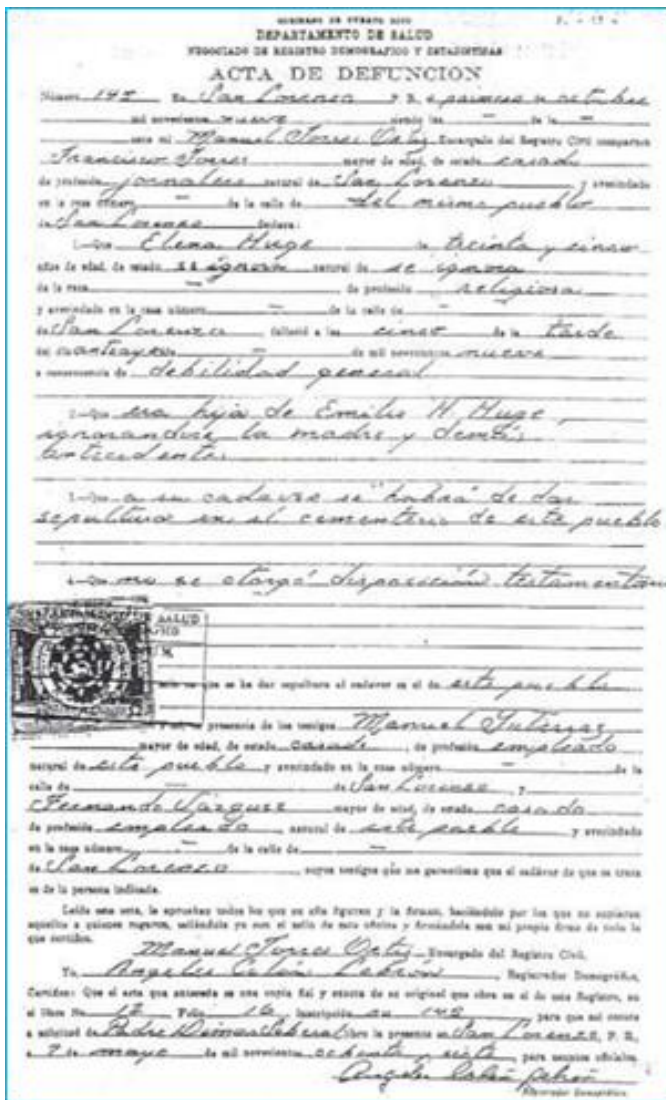 GOBIERNO DE PUERTO RICO
DEPARTAMENTO DE SALUD
NEGOCIADO DE REGISTRO DEMOGRAFICO Y ESTADISTICAS
ACTA DE DEFUNCION
Número 142 En San Lorenzo P. R. a primero de octubre
mil novecientos nueve siendo las — de la —
ante mí Manuel Torres Ortiz Encargado del Registro Civil compareció
Francisco Torres mayor de edad, de estado casado
de profesión jornalero natural de San Lorenzo y avecindado
en la casa número — de la calle de del mismo pueblo
de San Lorenzo declara:
1—Que Elena Huge de treinta y cinco
años de edad, de estado se ignora natural de se ignora
de la raza — de profesión religiosa
y avecindado en la casa número — de la calle de —
de San Lorenzo falleció a las cinco de la tarde
del — de mil novecientos nueve
a consecuencia de debilidad general
2—Que era hija de Emilio H. Huge,
ignorandose la madre y demás
antecedentes
3—Que a su cadaver se "habrá" de dar
sepultura en el cementerio de este pueblo
4—Que no se otorgó disposición testamentaria
SALUD
que se ha dar sepultura al cadaver es el de este pueblo
presencia de los testigos Manuel Gutierrez
mayor de edad, de estado casado, de profesión empleado
natural de este pueblo y avecindado en la casa número — de la
calle de — de San Lorenzo y
Fernando Vázquez mayor de edad, de estado casado
de profesión empleado, natural de este pueblo y avecindado
en la casa número — de la calle de —
de San Lorenzo, cuyos testigos que me garantizan que el cadáver de que se trata
es de la persona indicada.
Leída esta acta, la aprueban todos los que en ella figuran y la firman, haciéndolo por los que no supieren
aquellos a quienes rogaron, sellándola yo con el sello de esta oficina y firmándola con mi propia firma de todo lo
que certifico.
Manuel Torres Ortiz Encargado del Registro Civil,
Yo Angeles Colón Lebrón, Registrador Demográfico,
Certifico: Que el acta que antecede es una copia fiel y exacta de su original que obra en el de este Registro, en
el libro No. 12 Folio 16 Inscripción No 142, para que así conste
a solicitud de Padre Dimas libro la presente en San Lorenzo, P. R.,
a 7 de mayo de mil novecientos ochenta y siete, para asuntos oficiales.
Angeles Colón Lebrón
Registrador Demográfico.